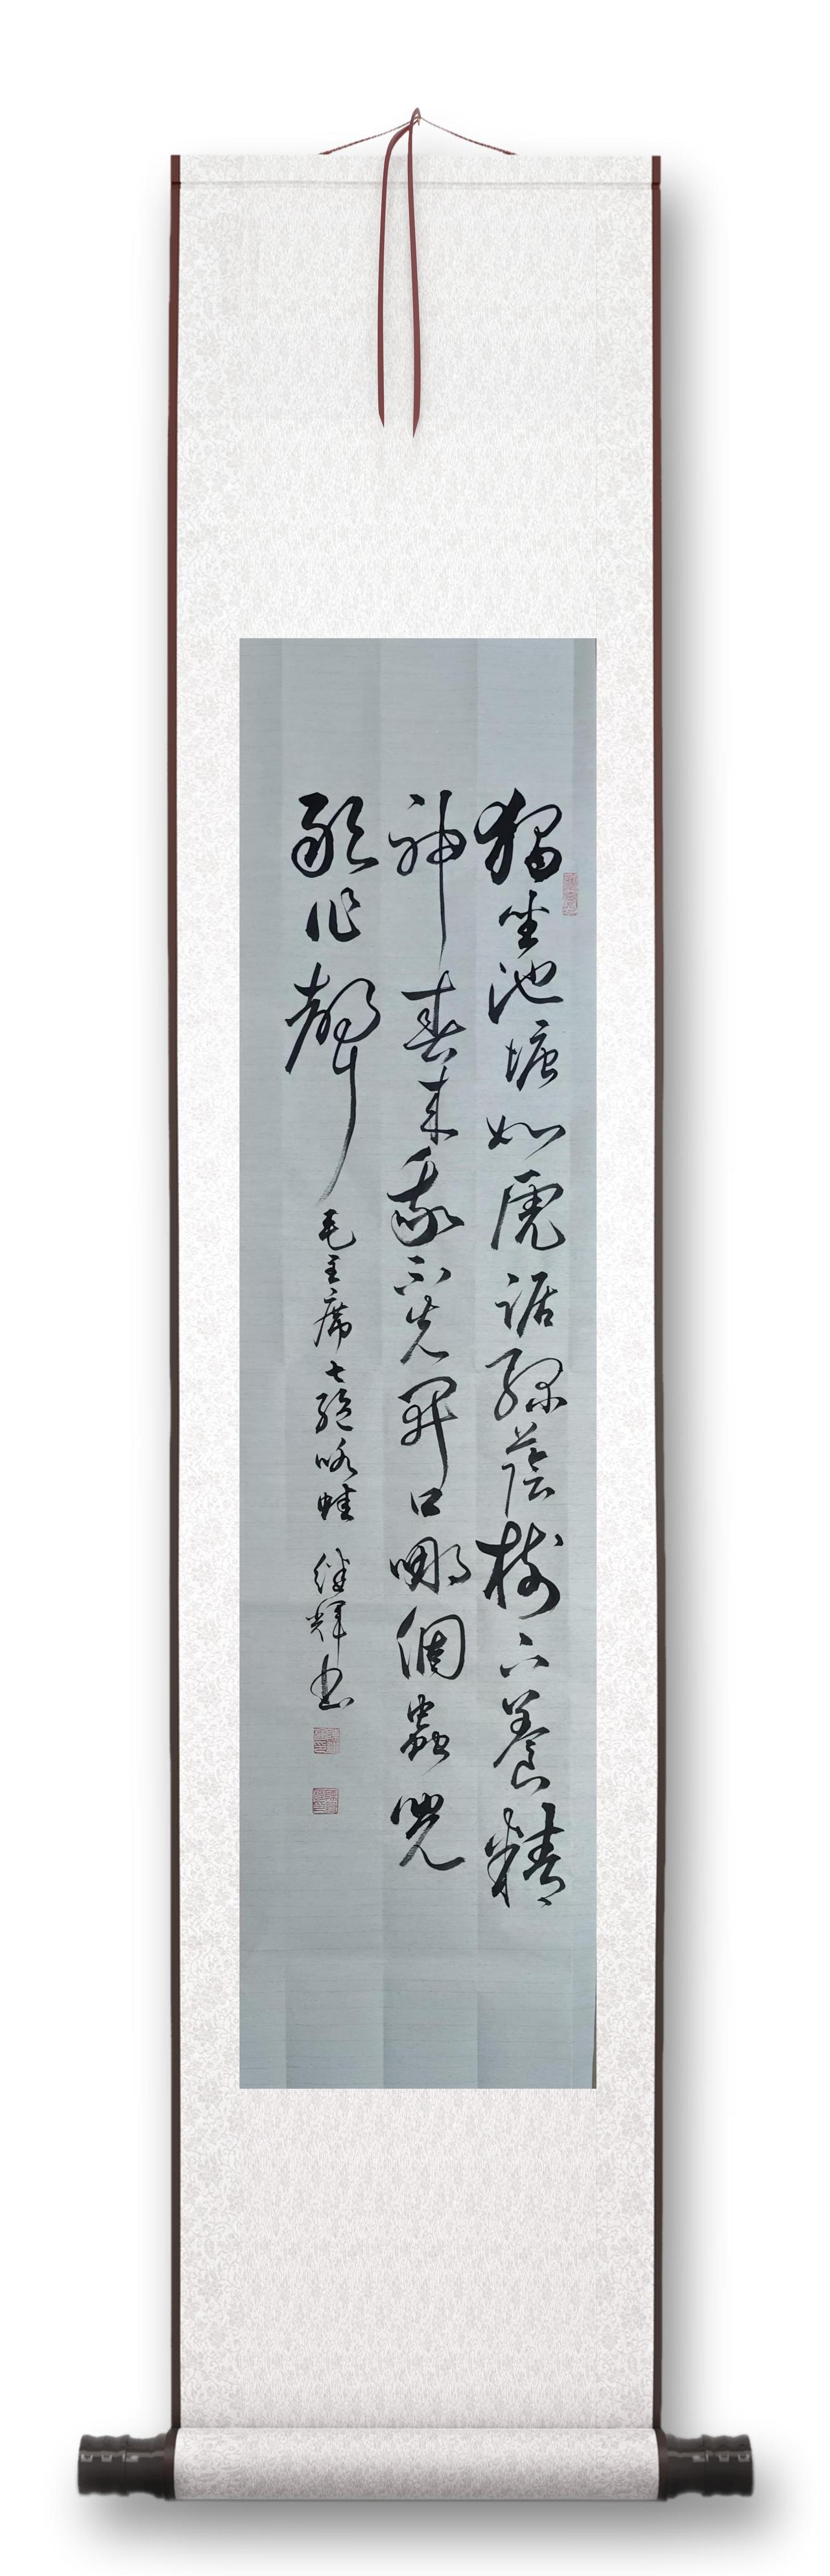 獨坐池塘如虎踞綠蔭樹下養精
神春來我不先開口哪個蟲兒
敢作聲
毛主席七絕咏蛙 继輝书